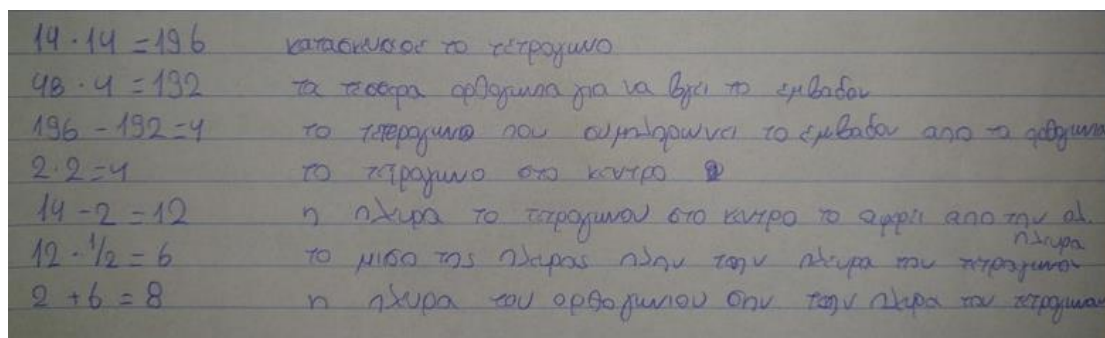 14 · 14 = 196 κατασκευασε το τετραγωνο
48 · 4 = 192 τα τεσσερα ορθογωνια για να βγει το εμβαδον
196 - 192 = 4 το τετεραγωνο που συμπληρωνει το εμβαδον απο τα ορθογωνια
2 · 2 = 4 το τετραγωνο στο κεντρο
14 - 2 = 12 η πλευρα το τετραγωνου στο κεντρο το αφαιρει απο την ολ. πλευρα
12 · 1/2 = 6 το μισο της πλευρας πλην την πλευρα του τετραγωνου
2 + 6 = 8 η πλευρα του ορθογωνιου συν την πλευρα του τετραγωνου